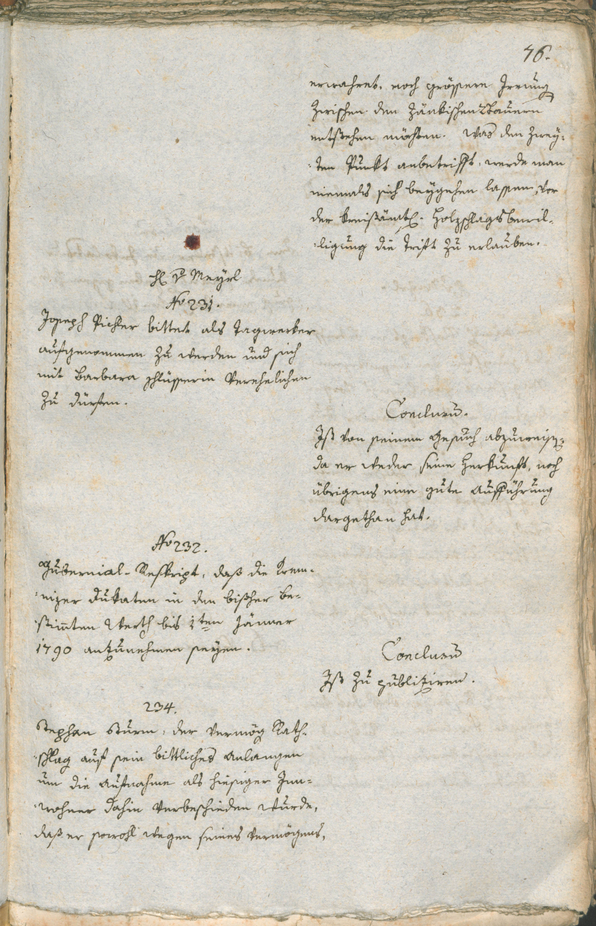 76.
erwahret, noch grössere Irrung
zwischen den Zänkischen Bauern
entstehen möchten. Was den zwey-
ten Punkt anbetrifft, werde man
niemals sich beygehen lassen, vor
der kreisämtl. Holzschlagsbewil-
ligung die Trift zu erlauben.
H. v. Meyrl
No 231.
Joseph Pichler bittet als Tagwerker
aufgenommen zu werden und sich
mit Barbara Schlüsserin verehelichen
zu dürfen.
Conclusum.
Ist von seinem Gesuch abzuweisen,
da er weder seine Herkunft, noch
übrigens eine gute Aufführung
dargethan hat.
No 232.
Gubernial-Reskript, daß die Krem-
nizer Dukaten in den bisher be-
stimmten Werth bis 1ten Jänner
1790 anzunehmen seyen.
Conclusum
Ist zu publiziren.
234.
Stephan Sturm, der vermög Rath-
schlag auf sein bittliches Anlangen
um die Aufnahme als hiesiger Inn-
wohner dahin verbeschieden wurde,
daß er sowohl wegen seines Vermögens,